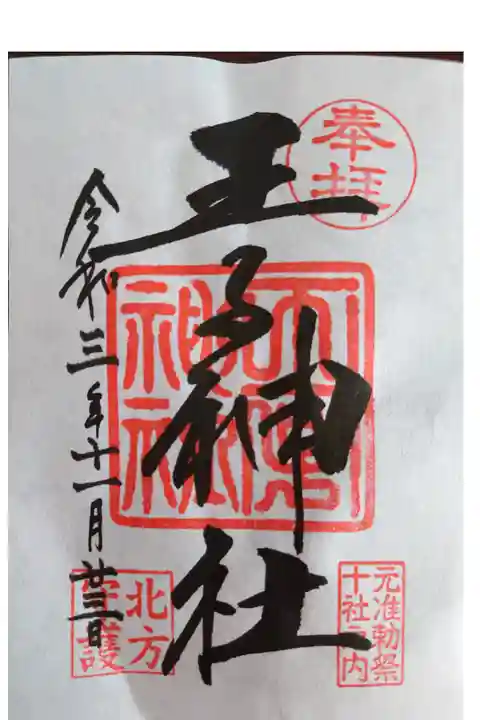 奉拝
王子神社
令和三年十一月廿三日
元准勅祭
十社之内
北方
守護